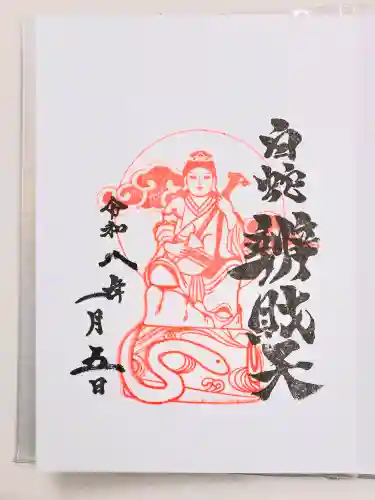 白蛇辨財天
令和八年月五日